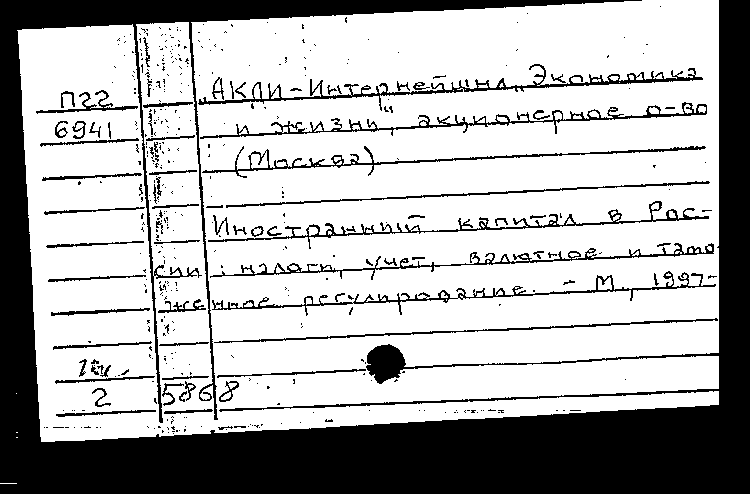 П22 „АКДИ-Интернейшнл„Экономика
6941 и жизнь", акционерное о-во
(Москва)
Иностранный капитал в Рос-
сии : налоги, учет, валютное и тамо
женное регулирование. - М., 1997-
2 5868